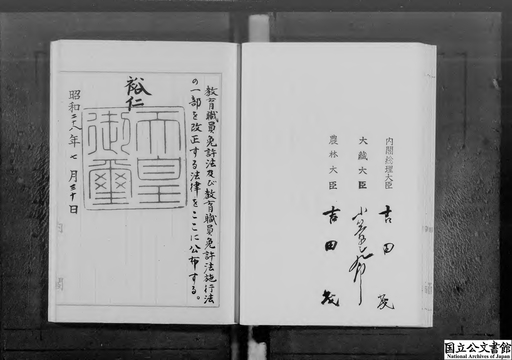 内閣総理大臣 吉田茂
大藏大臣
農林大臣 吉田茂
教育職員免許法及び教育職員免許法施行法
の一部を改正する法律をここに公布する。
裕仁
天皇
御璽
昭和二十八年七月三十日
国立公文書館
National Archives of Japan